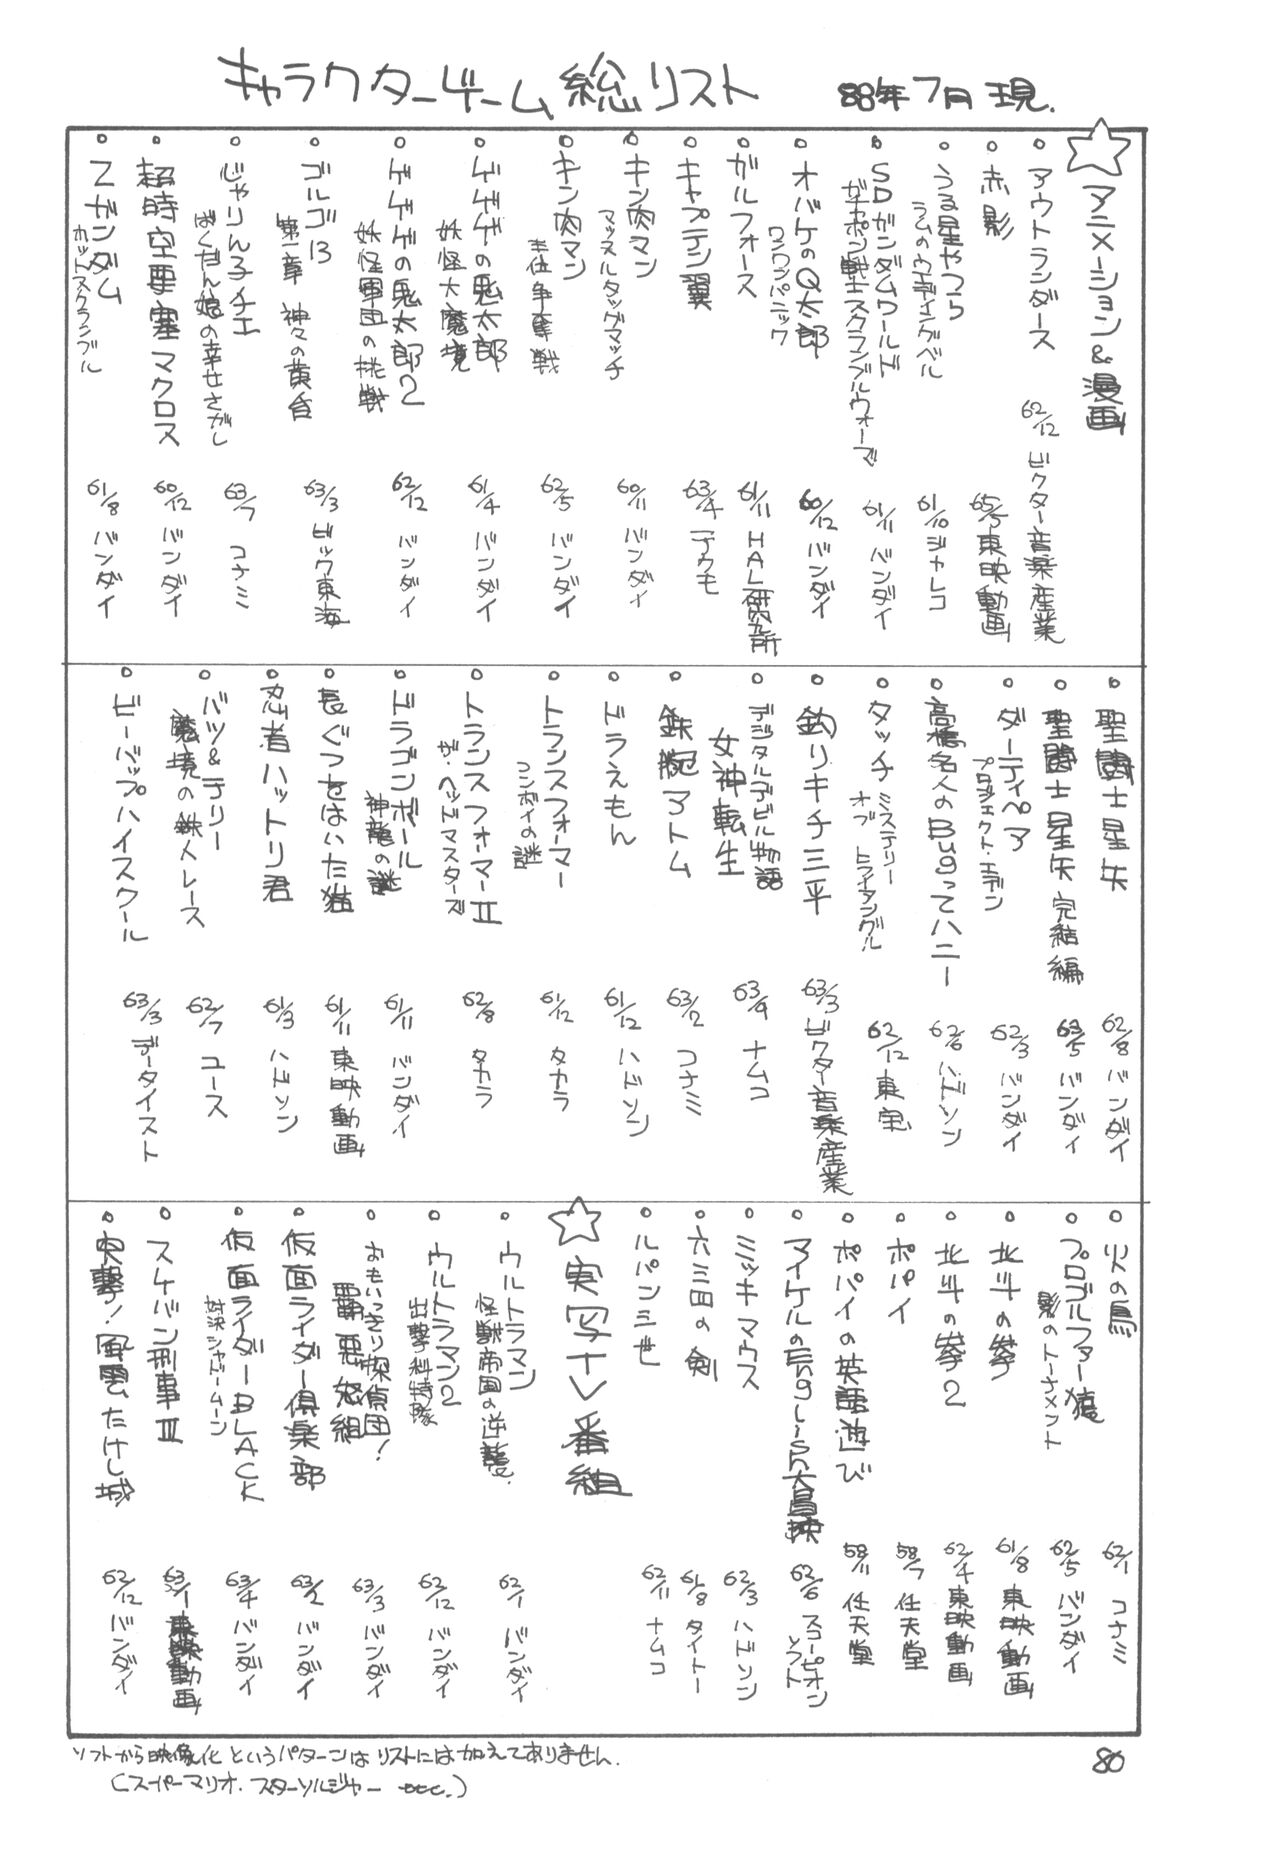 キャラクターゲーム総リスト 88年7月現.
☆アニメーション&漫画
・アウトランダース 62/12 ビクター音楽産業
・赤影 65/5 東映動画
・うる星やつら
ラムのウエディングベル 61/10 ジャレコ
・SDガンダムワールド
ガチャポン戦士スクランブルウォーズ 61/11 バンダイ
・オバケのQ太郎
ワンワンパニック 60/12 バンダイ
・ガルフォース 61/11 HAL研究所
・キャプテン翼 63/4 テクモ
・キン肉マン
マッスルタッグマッチ 60/11 バンダイ
・キン肉マン
王位争奪戦 62/5 バンダイ
・ゲゲゲの鬼太郎
妖怪大魔境 61/4 バンダイ
・ゲゲゲの鬼太郎2
妖怪軍団の挑戦 62/12 バンダイ
・ゴルゴ13
第一章 神々の黄昏 63/3 ビック東海
・じゃりん子チエ
ばくだん娘の幸せさがし 63/7 コナミ
・超時空要塞マクロス 60/12 バンダイ
・Zガンダム
ホットスクランブル 61/8 バンダイ
・聖闘士星矢 62/8 バンダイ
・聖闘士星矢 完結編 63/5 バンダイ
・ダーティペア
プロジェクト・エデン 62/3 バンダイ
・高橋名人のBugってハニー 62/6 ハドソン
・タッチ ミステリー
オブ トライアングル 62/12 東宝
・釣りキチ三平 63/3 ビクター音楽産業
・デジタルデビル物語
女神転生 63/9 ナムコ
・鉄腕アトム 63/2 コナミ
・ドラえもん 61/12 ハドソン
・トランスフォーマー
コンボイの謎 61/12 タカラ
・トランスフォーマーII
ザ・ヘッドマスターズ 62/8 タカラ
・ドラゴンボール
神龍の謎 61/11 バンダイ
・長ぐつをはいた猫 61/11 東映動画
・忍者ハットリ君 61/3 ハドソン
・バツ&テリー
魔境の鉄人レース 62/7 ユース
・ビーバップハイスクール 63/3 データイスト
・火の鳥 62/1 コナミ
・プロゴルファー猿
影のトーナメント 62/5 バンダイ
・北斗の拳 61/8 東映動画
・北斗の拳2 62/4 東映動画
・ポパイ 58/7 任天堂
・ポパイの英語遊び 58/11 任天堂
・マイケルのEnglish大冒険 62/6 スコーピオン
ソフト
・ミッキマウス 62/3 ハドソン
・六三四の剣 61/8 タイトー
・ルパン三世 62/11 ナムコ
☆実写TV番組
・ウルトラマン
怪獣帝国の逆襲. 62/1 バンダイ
・ウルトラマン2
出撃科特隊 62/12 バンダイ
・おもいっきり探偵団!
覇悪怒組 63/3 バンダイ
・仮面ライダー倶楽部 63/2 バンダイ
・仮面ライダーBLACK
対決シャドームーン 63/4 バンダイ
・スケバン刑事III 63/1 東映動画
・突撃!風雲たけし城 62/12 バンダイ
ソフトから映像化というパターンはリストには加えてありません.
(スーパーマリオ. スターソルジャー etc.)
80